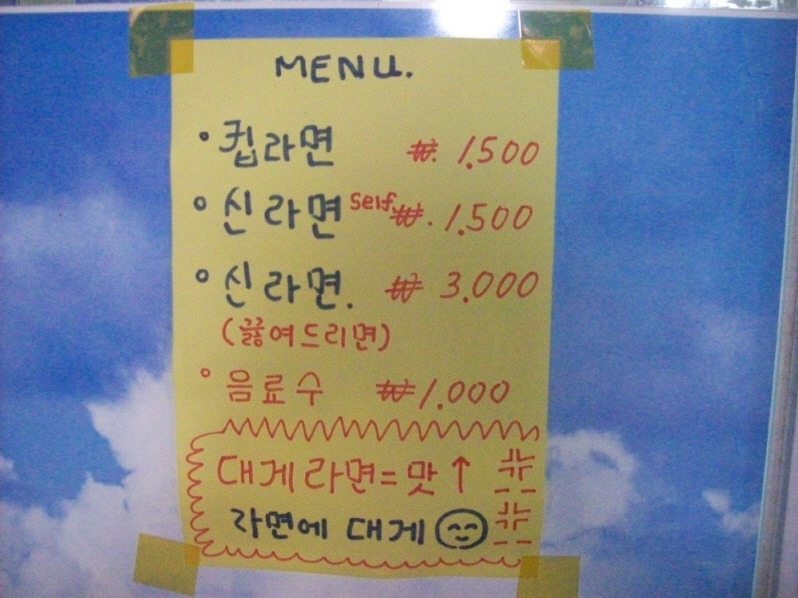 MENU.
• 컵라면 ₩. 1.500
• 신라면 self ₩. 1.500
• 신라면. ₩ 3.000
(끓여드리면)
• 음료수 ₩ 1.000
대게라면=맛↑
라면에 대게